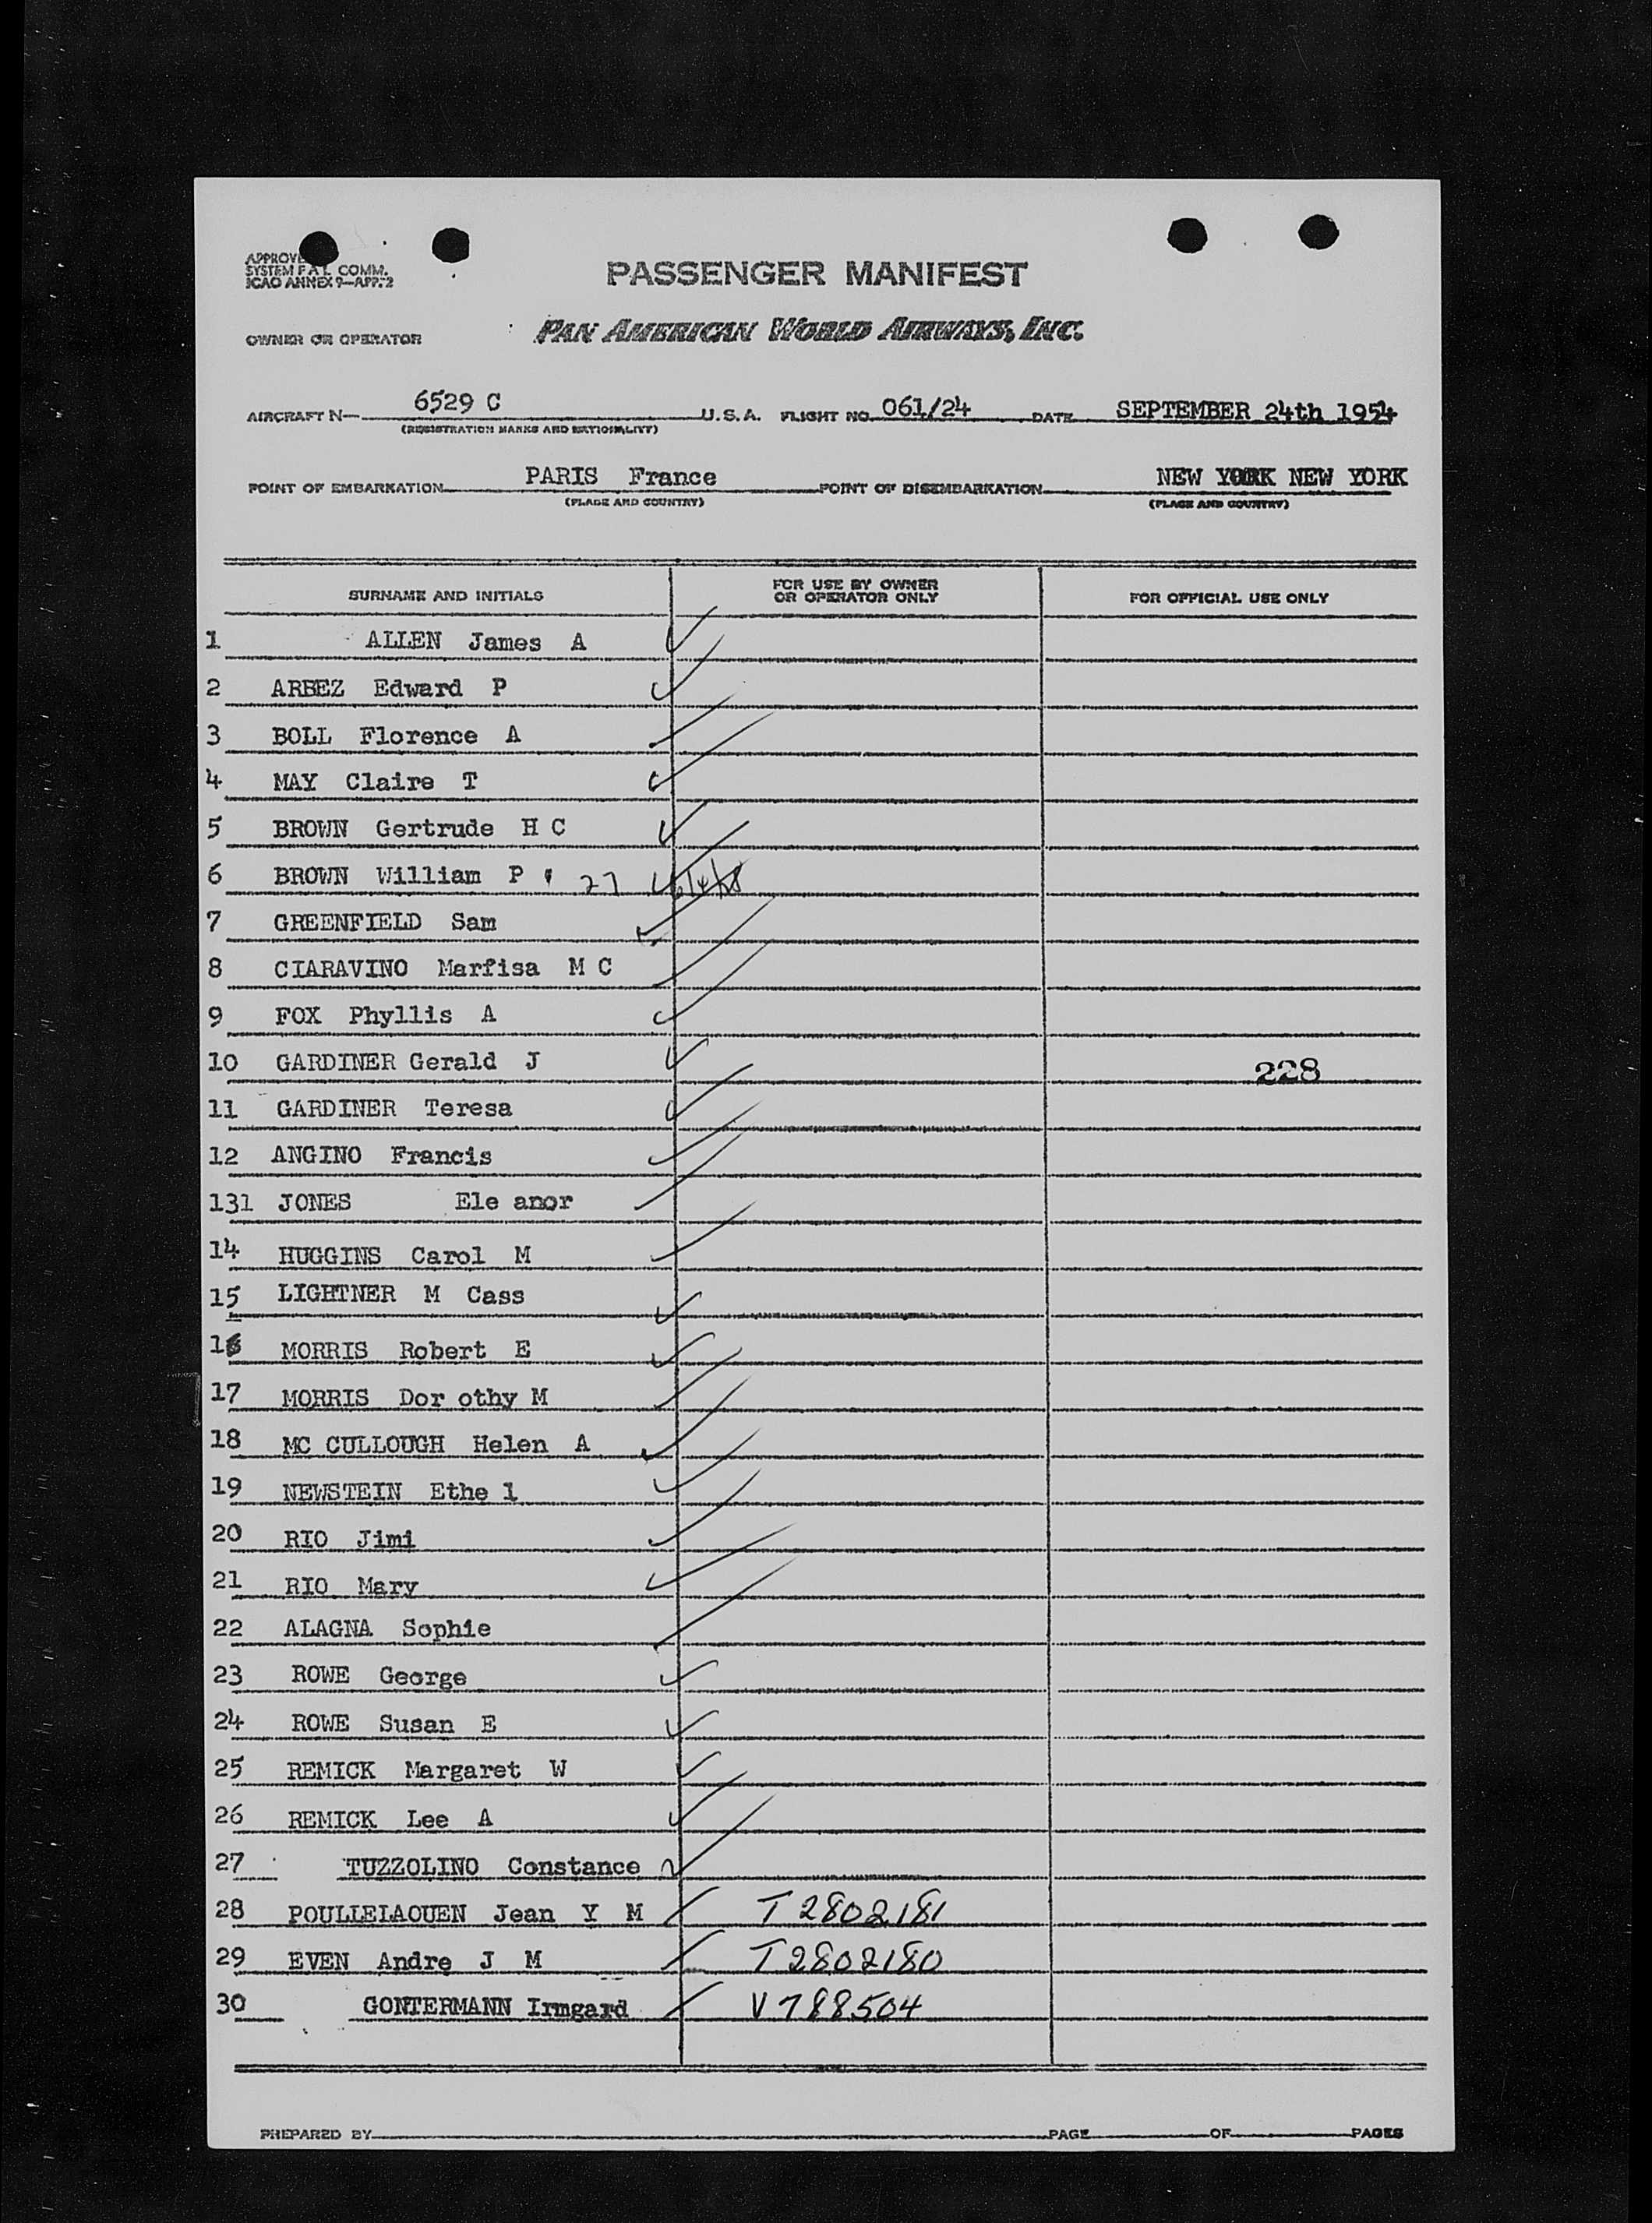 APPROVE
SYSTEM F A L COMM.
ICAO ANNEX 9—APP. 2
PASSENGER MANIFEST
OWNER OR OPERATOR PAN AMERICAN WORLD AIRWAYS, INC.
AIRCRAFT N— 6529 C U.S.A. FLIGHT NO. 061/24 DATE SEPTEMBER 24th 1954
(REGISTRATION MARKS AND NATIONALITY)
POINT OF EMBARKATION PARIS France POINT OF DISEMBARKATION NEW YORK NEW YORK
(PLACE AND COUNTRY) (PLACE AND COUNTRY)
SURNAME AND INITIALS FOR USE BY OWNER OR OPERATOR ONLY FOR OFFICIAL USE ONLY
1 ALLEN James A
2 ARBEZ Edward P
3 BOLL Florence A
4 MAY Claire T
5 BROWN Gertrude H C
6 BROWN William P 27
7 GREENFIELD Sam
8 CIARAVINO Marfisa M C
9 FOX Phyllis A
10 GARDINER Gerald J 228
11 GARDINER Teresa
12 ANGINO Francis
131 JONES Ele anor
14 HUGGINS Carol M
15 LIGHTNER M Cass
16 MORRIS Robert E
17 MORRIS Dor othy M
18 MC CULLOUGH Helen A
19 NEWSTEIN Ethe l
20 RIO Jimi
21 RIO Mary
22 ALAGNA Sophie
23 ROWE George
24 ROWE Susan E
25 REMICK Margaret W
26 REMICK Lee A
27 TUZZOLINO Constance
28 POULLELAOUEN Jean Y M T2802181
29 EVEN Andre J M T2802180
30 GONTERMANN Irmgard V788504
PREPARED BY PAGE OF PAGES